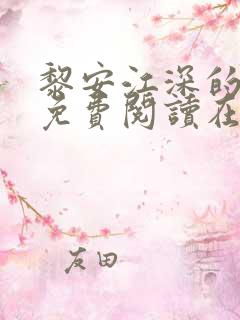 黎安江深的
免費閱讀在
友田